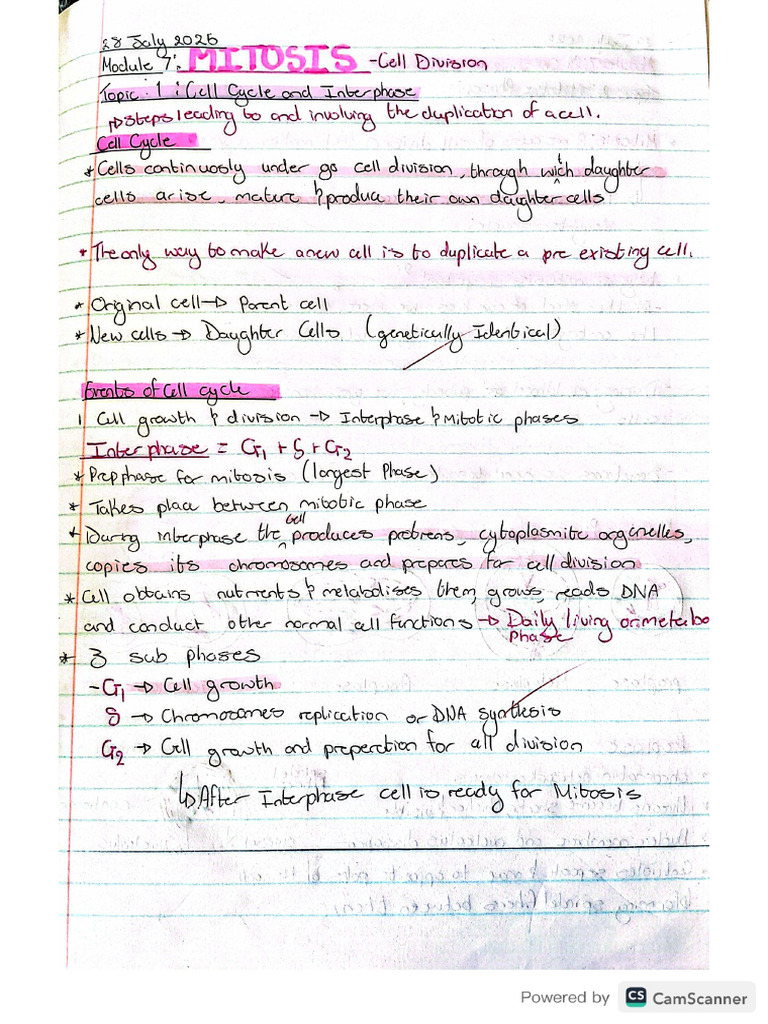 28 July 2025
Module 7: MITOSIS - Cell Division
Topic: 1 : Cell Cycle and Interphase
↳ steps leading to and involving the duplication of a cell.
Cell Cycle
* Cells continuosly under go cell division, through witch daughter
cells arise, mature & produce their own daughter cells
* The only way to make a new cell is to duplicate a pre existing cell.
* Original cell → Parent cell
* New cells → Daughter Cells (genetically Identical)
Events of Cell cycle
1 Cell growth & division → Interphase & Mitotic phases
Interphase = G1 + S + G2
* Prep phase for mitosis (largest Phase)
* Takes place between mitotic phase
* During interphase the cell produces proteins, cytoplasmite organelles,
copies its chromosomes and prepares for cell division
* Cell obtains nutrients & metabolises them, grows, reads DNA
and conduct other normal cell functions → Daily living or metabo
Phase
* 3 sub phases
- G1 → Cell growth
S → Chromosomes replication or DNA synthesis
G2 → Cell growth and preperation for cell division
↳ After Interphase cell is ready for Mitosis
Powered by CS CamScanner